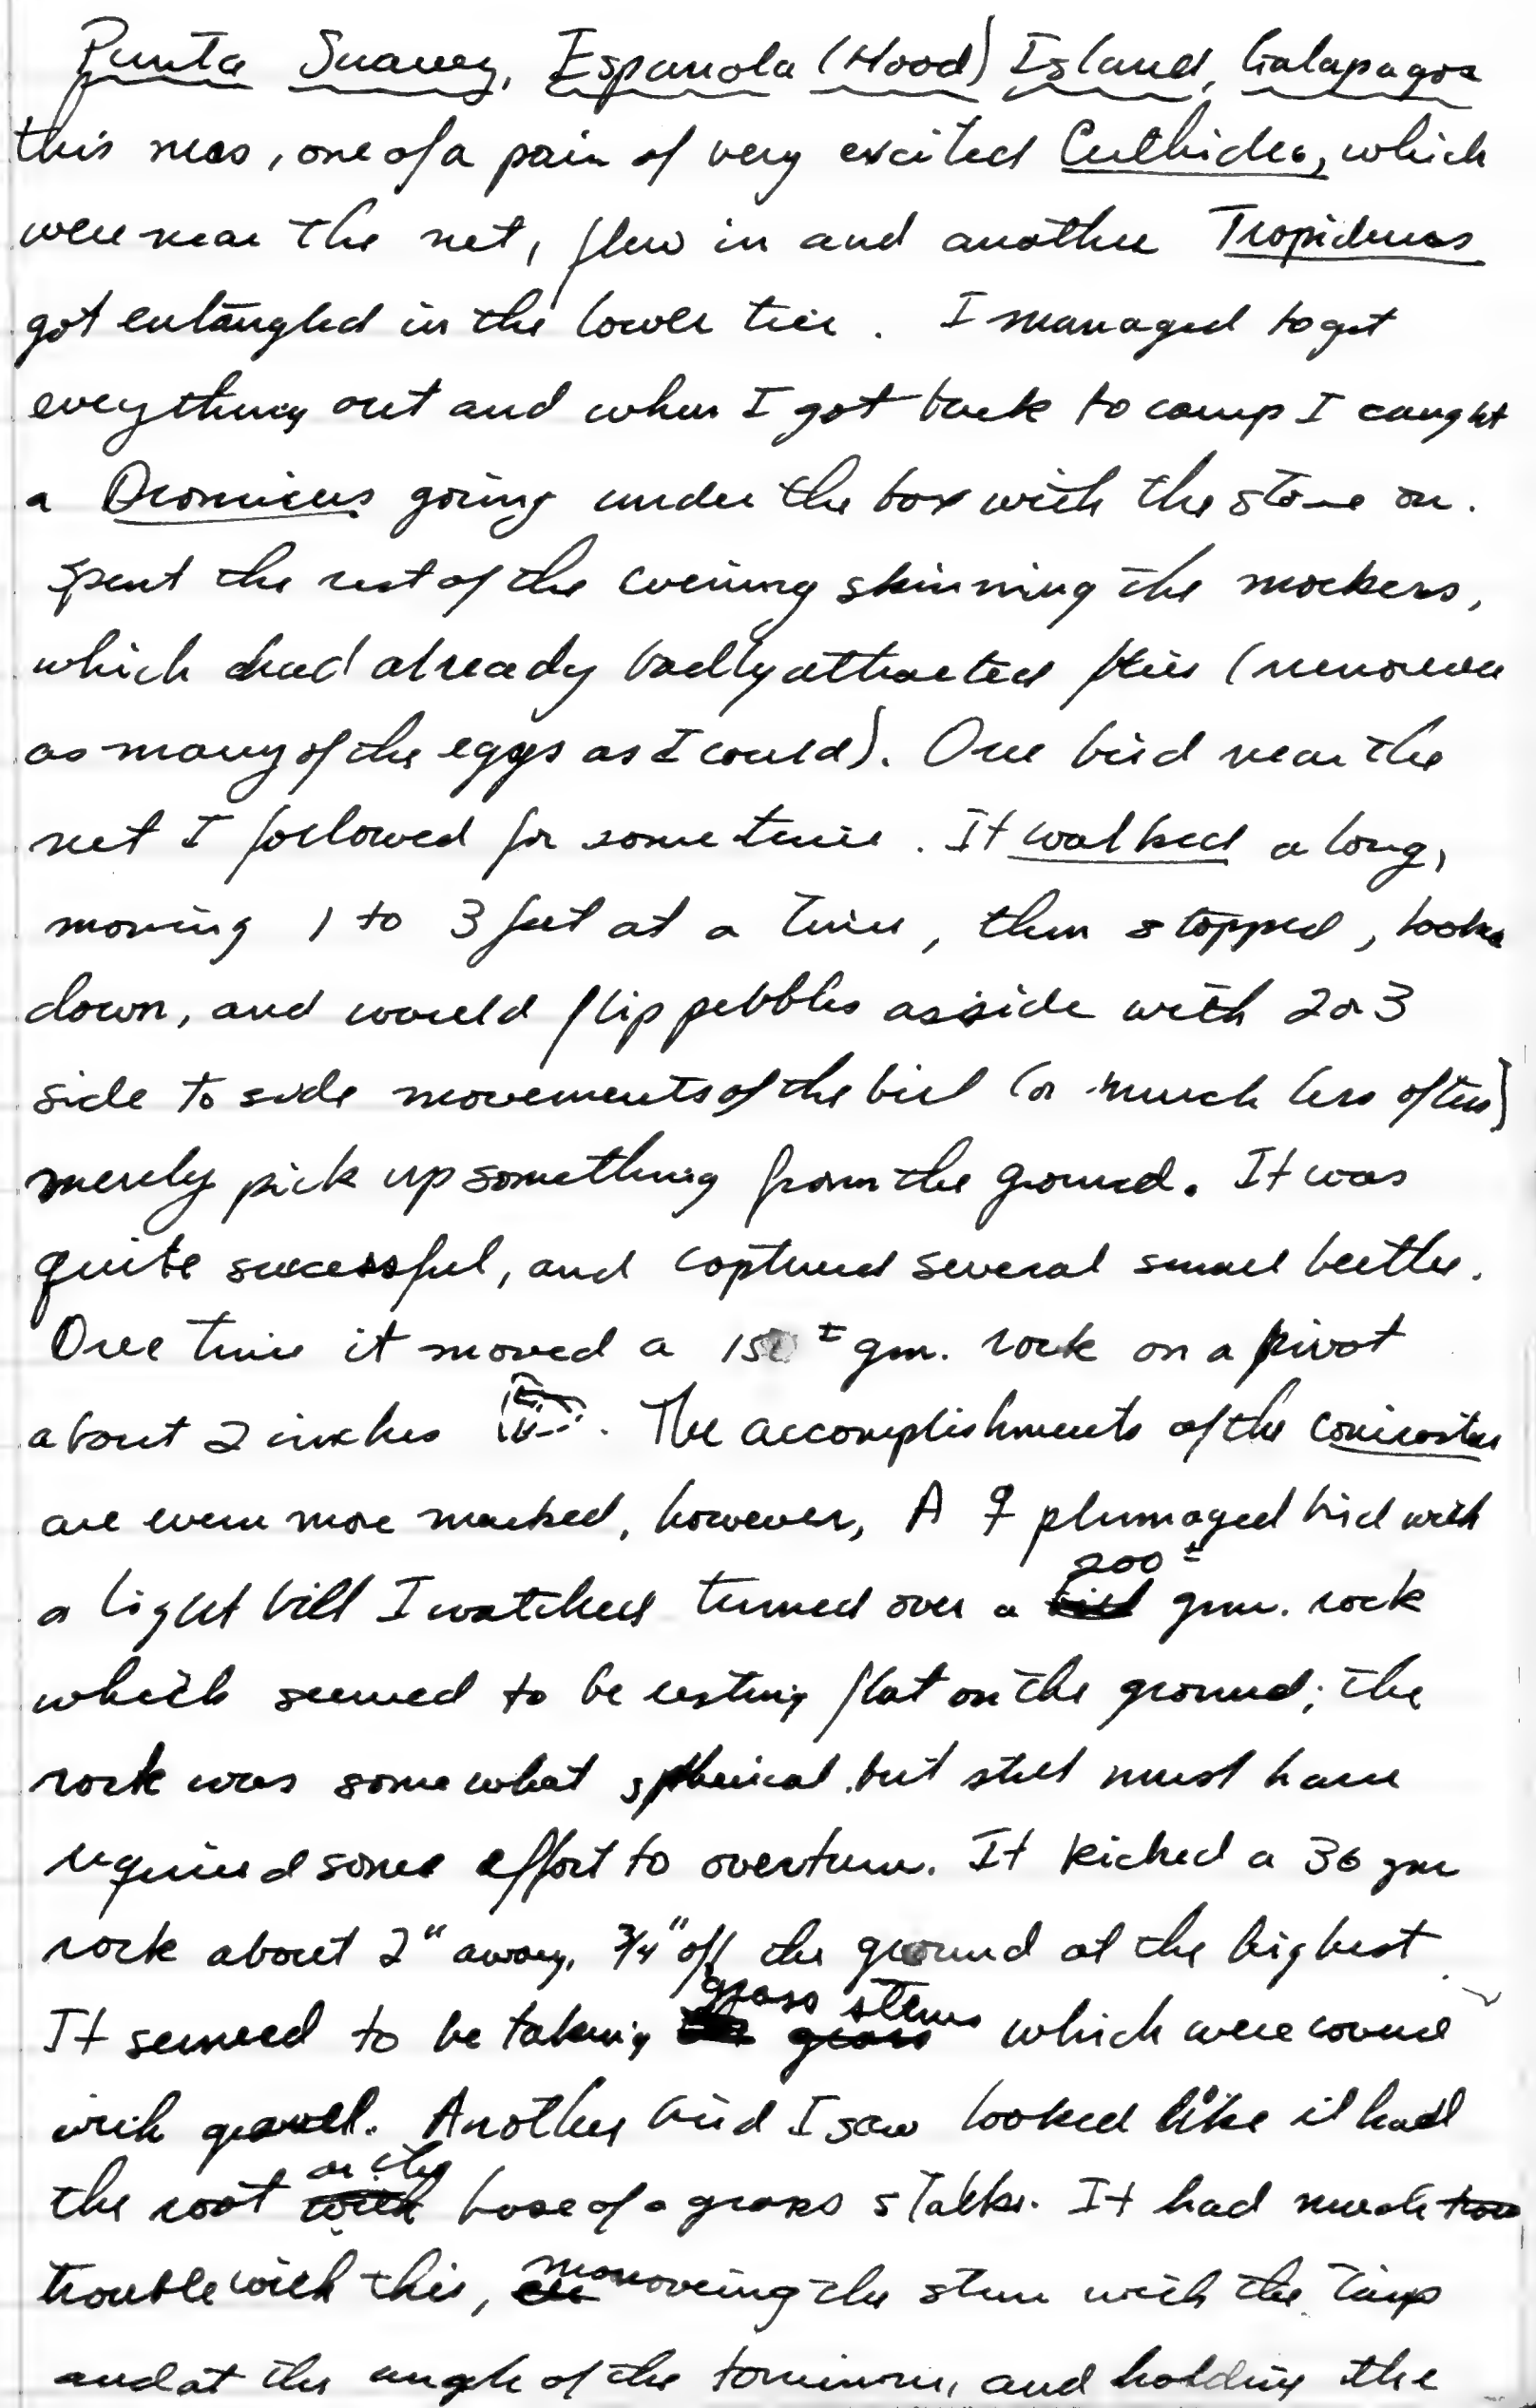 Punta Suarez, Espanola (Hood) Island, Galapagos
this was, one of a pair of very excited Certhidea, which
were near the net, flew in and another Tropidurus
got entangled in the lower tier. I managed to get
everything out and when I got back to camp I caught
a Dromicus going under the box with the stone on.
Spent the rest of the evening skinning the mockers,
which had already badly attracted flies (removed
as many of the eggs as I could). One bird near the
net I followed for some time. It walked along,
moving 1 to 3 feet at a time, then stopped, looked
down, and would flip pebbles asside with 2 or 3
side to side movements of the bill (or much less often)
merely pick up something from the ground. It was
quite successful, and captured several small beetles.
One time it moved a 150 ± gm. rock on a pivot
about 2 inches. The accomplishments of the conirostris
are even more marked, however, A ♀ plumaged bird with
a light bill I watched turned over a 200± gm. rock
which seemed to be resting flat on the ground; the
rock was somewhat spherical but still must have
required some effort to overturn. It kicked a 36 gm
rock about 2" away, 3/4" off the ground at the highest
It seemed to be taking grass stems which were covered
with gravel. Another bird I saw looked like it had
the root or the base of a grass stalk. It had much
trouble with this, the stem with the tip
and at the angle of the tomium, and holding the